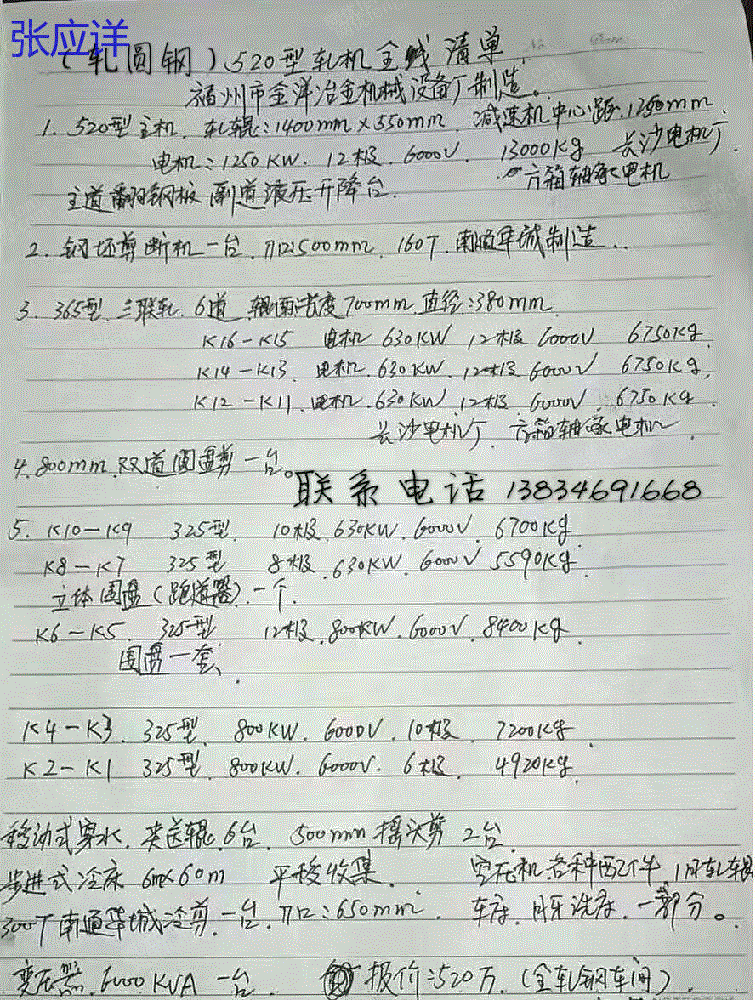 张应洋
(轧圆钢)520型轧机全线清单
福州市金洋冶金机械设备厂制造。
1. 520型主机. 轧辊:1400mm×550mm. 减速机中心距1250mm.
电机:1250KW. 12极. 6000V. 13000kg 长沙电机厂.
方箱轴承电机
主道翻钢板 副道液压升降台.
2. 钢坯剪断机一台. 刀口:500mm. 160T. 南通华城制造..
3. 365型 三联轧. 6道. 辊面宽度700mm. 直径:380mm.
K16-K15 电机 630KW 12极 6000V 6750kg.
K14-K13. 电机. 630KW. 12极 6000V 6750kg.
K12-K11. 电机. 630KW. 12极 6000V. 6750kg.
长沙电机厂. 方箱轴承电机.
4. 800mm. 双道圆盘剪一台。
联系电话 13834691668
5. K10-K9 325型 10极. 630KW. 6000V. 6700kg.
K8-K7 325型 8极. 630KW. 6000V 5590kg.
立体围盘(跑道器). 一个.
K6-K5. 325型 12极. 800KW. 6000V. 8400kg.
围盘一套.
K4-K3. 325型. 800KW. 6000V. 10极. 7200kg.
K2-K1 325型. 800KW. 6000V. 6极. 4920kg.
移动式穿水. 夹送辊. 6台. 500mm 摇头剪 2台.
步进式冷床 6m×60m 平移收集. 各种配件.
300T南通华城冷剪. 一台. 刀口:650mm. 车床. 月牙洗床. 一部分。
变压器. 6000KVA 一台. 报价:520万. (全轧钢车间).